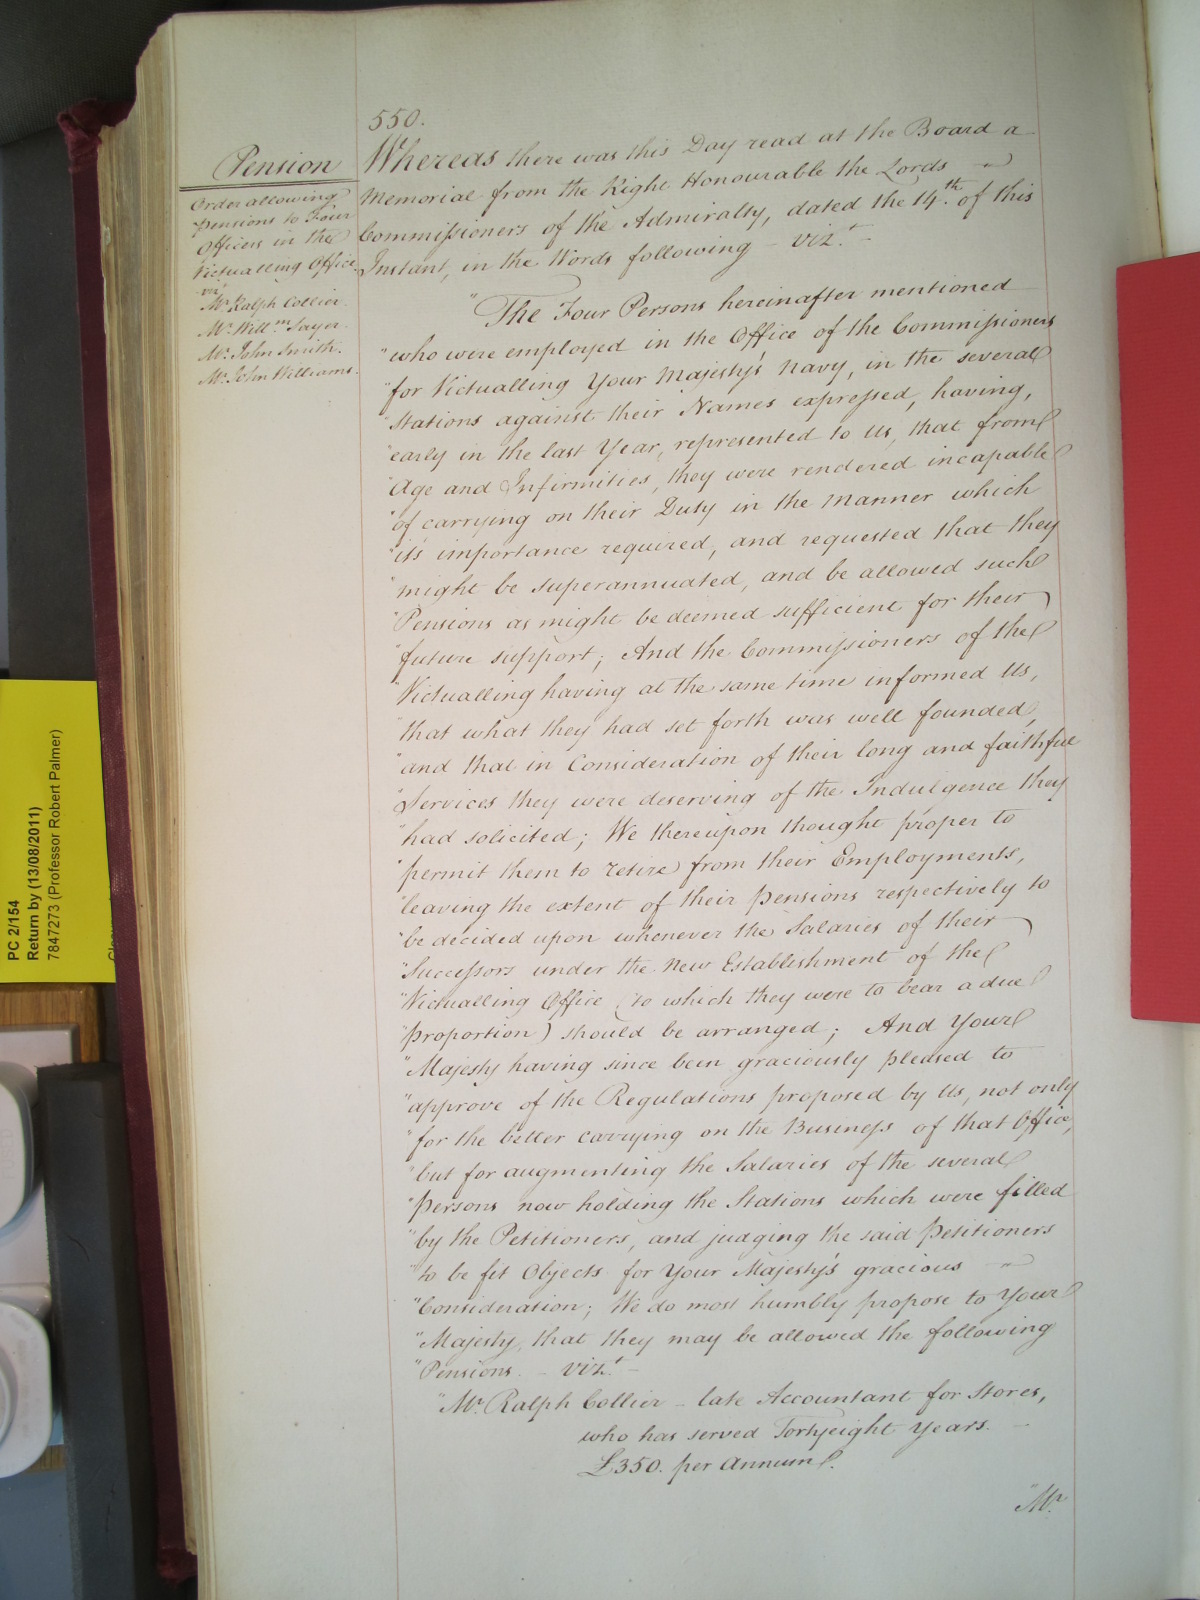 550.
Pension
Order allowing
pensions to Four
Officers in the
Victualling Office
vizt
Mr. Ralph Collier.
Mr. Willm. Sayer.
Mr. John Smith.
Mr. John Williams.
Whereas there was this Day read at the Board a
Memorial from the Right Honourable the Lords
Commissioners of the Admiralty, dated the 14th. of this
Instant, in the Words following - vizt. -
"The Four Persons hereinafter mentioned
"who were employed in the Office of the Commissioners
"for Victualling Your Majesty's Navy, in the several
"Stations against their Names expressed, having,
"early in the last Year, represented to Us, that from
"Age and Infirmities, they were rendered incapable
"of carrying on their Duty in the manner which
"it's importance required, and requested that they
"might be superannuated, and be allowed such
"Pensions as might be deemed sufficient for their
"future support; And the Commissioners of the
"Victualling having at the same time informed Us,
"that what they had set forth was well founded,
"and that in Consideration of their long and faithful
"Services they were deserving of the Indulgence they
"had solicited; We thereupon thought proper to
"permit them to retire from their Employments,
"leaving the extent of their Pensions respectively to
"be decided upon whenever the Salaries of their
"Successors under the New Establishment of the
"Victualling Office (to which they were to bear a due
"proportion) should be arranged; And Your
"Majesty having since been graciously pleased to
"approve of the Regulations proposed by Us, not only
"for the better carrying on the Business of that Office,
"but for augmenting the Salaries of the several
"Persons now holding the Stations which were filled
"by the Petitioners, and judging the said Petitioners
"to be fit Objects for Your Majesty's gracious
"Consideration; We do most humbly propose to Your
"Majesty, that they may be allowed the following
"Pensions. - vizt. -
"Mr. Ralph Collier - late Accountant for Stores,
who has served Fortyeight Years. -
£350. per Annum.
"Mr.
PC 2/154
Return by (13/08/2011)
7847273 (Professor Robert Palmer)